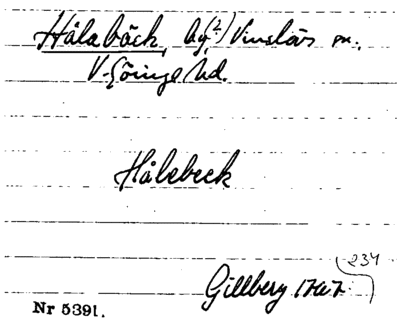 Hålabäck, by(?) Vinslövs sn.,
V. Göinge hd.
Hålebeck
234
Gillberg 1767.
Nr 5391.